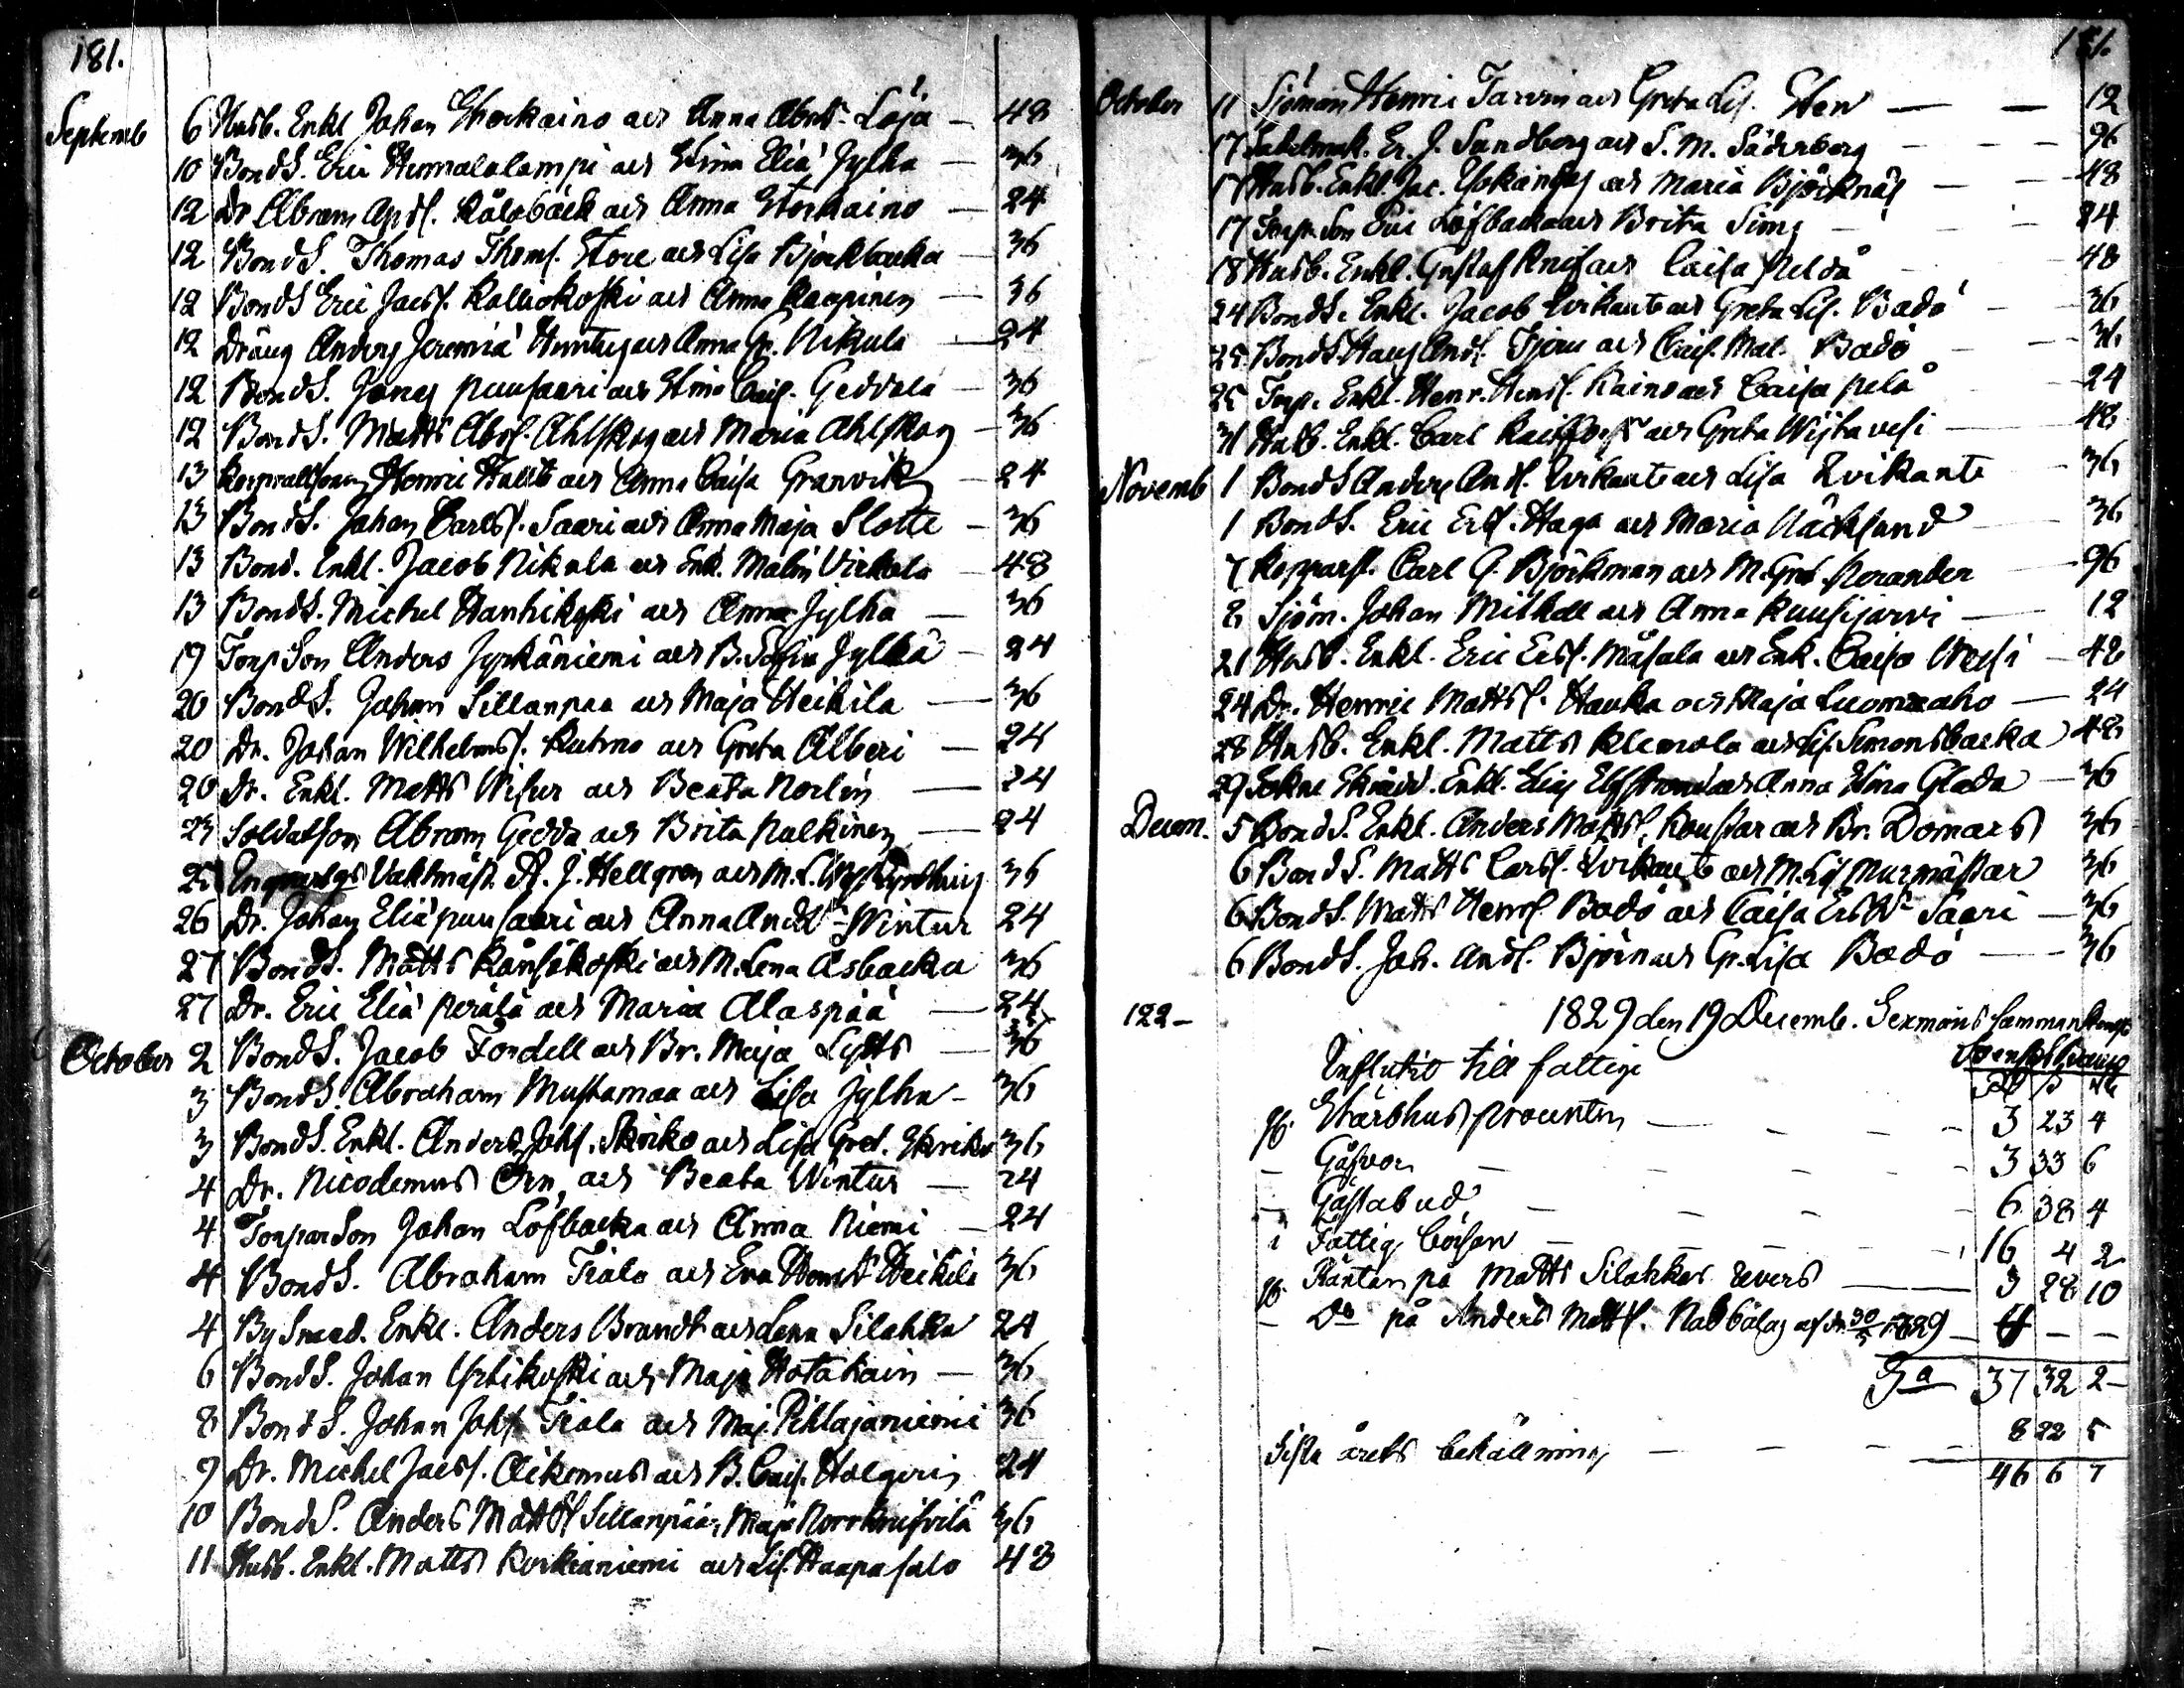 181.
Septemb 6 Husb. Enkl Johan Storkaino och Anna Abrts. Löja — 48
10 BondS. Eric Hummalalampi och Stina Eliæ Jylha — 36
12 Dr Abram Andſ. Kålobäck och Anna Storkaino — 24
12 BondS. Thomas Thomſ. Store och Lisa Björkbacka — 36
12 BondS Eric Jacsſ. Kalliokoski och Anna Kaapinen — 36
12 Dräng Anders Jeremiæ Huntus och Anna Gr. Nikula — 24
12 BondS. Jonas Puusaari och Stina Cais. Geddala — 36
12 BondS. Matts Absſ. Ahlskog och Maria Ahlskog — 36
13 Korpralsson Henric och Anna Caisa Granvik — 24
13 BondS. Johan Carlsſ. Saari och Anna Maja Slotte — 36
13 Bond. Enkl. Jacob Nikula och Enk. Malin Virkala — 48
13 BondS. Michel Hanhikoski och Anna Jylha — 36
19 Torp Son Anders Jyrkäniemi och B. Sofia Jylhä — 24
20 BondS. Johan Sillanpaa och Maja Heikila — 36
20 Dr. Johan Wilhelmsſ. Kuhno och Greta Alberi — 24
20 Dr. Enkl. Matts och Beata Norlin — 24
25 Soldatson Abram Gedda och Brita Nalkinen — 24
25 Vaktmäst. J. Hellgren och M. L. 36
26 Dr. Johan Eliæ Puusaari och Anna Andsdr Wintur 24
27 BondS. Matts Kånsåkoski och M. Lena Åsbacka 36
27 Dr. Eric Eliæ Perälä och Maria Alaspää — 24
October 2 BondS. Jacob Fordell och Br. Maja Lytts — 36
3 BondS. Abraham Mustamaa och Lisa Jylha — 36
3 BondS. Enkl. Anders Johſ. Skriko och Lisa Gret. Skriko 36
4 Dr. Nicodemus Örn och Beata Wintur — 24
4 Torpar Son Johan Löfbacka och Anna Niemi — 24
4 BondS. Abraham Tiala och Eva Heikilä 36
4 By Smed. Enkl. Anders Brandt och Lena Silahka 24
6 BondS. Johan och Maja Hotakain — 36
8 BondS. Johan Johſ Tiala och Maj. Pihlajaniemi 36
9 Dr. Michel Jacsſ. Åikomus och B. Cais. Holgeris 24
10 BondS. Anders Mattsſ Sillanpää, Maja Norrknifvilä 36
11 Husb. Enkl. Matts Korkianiemi och Lis. Haapasalo 48
181.
October 11 Sjöman Henric Tarvin och Greta Lis. Sten — — 12
17 Sadelmak. Er. J. Sandberg och S. M. Söderberg — — 96
17 Husb. Enkl. Jac. Ylikangas och Maria Björknäs — 48
17 Torp. Son Eric Löfbacka och Brita Simz — 24
18 Husb. Enkl. Gustaf Knif och Caisa Peldå 48
24 BondS. Enkl. Jacob Evikant och Greta Lis. Bado — 36
25 BondS. Hans Andſ. Tjern och Cais. Mat. Bodö — 36
25 Torp. Enkl. Henr. Henrſ. Kaino och Caisa Pelå — 24
31 Husb. Enkl. Carl och Greta Wiitavesi — 48
Novemb 1 BondS Anders Andſ. Evikant och Lisa Evikant — 36
1 BondS. Eric Ersſ. Haga och Maria Näcksund — 36
7 Kopparsl. Carl G. Björkman och M. Gret. Nerander — 96
8 Sjöm. Johan Mithall och Anna Kuusijarvi — 12
21 Husb. Enkl. Eric Ersſ. Måsala och Enk. Caisa Wessi — 48
24 Dr. Henric Mattsſ. Hauka och Maja Luomaaho — 24
28 Husb. Enkl. Matts Klemola och Lis. Simonsbacka 48
29 Sokne Skrädd. Enkl. Elias Elfstrand och Anna Stina Glada — 36
Decem. 5 BondS. Enkl. Anders Mattsſ. Koustar och Br. Domars 36
6 BondS. Matts Carlsſ. Evikant och M. Lis Murmästar 36
6 BondS. Matts Henrſ. Bodö och Caisa Ersdr Saari — 36
6 BondS. Joh. Andſ. Björn och Gr. Lisa Bodö — 36
122 — 1829 den 19 Decemb. Sexmans Sammankomst
Influtit till fattige
Svenskt Banco
Rd ß rst
pr. Stärbhus procenten — 3 23 4
— Gåfvor — 3 33 6
— Gästabud — 6 38 4
i Fattig Börsen — 16 4 2
pr. Räntan på Matts Silahkas revers — 3 28 10
— Do på Anders Mattsſ. Nabbålas af d. 30/5 1829 — 4 — —
Sa 37 32 2 —
Sista årets behållning — 8 22 5
46 6 7